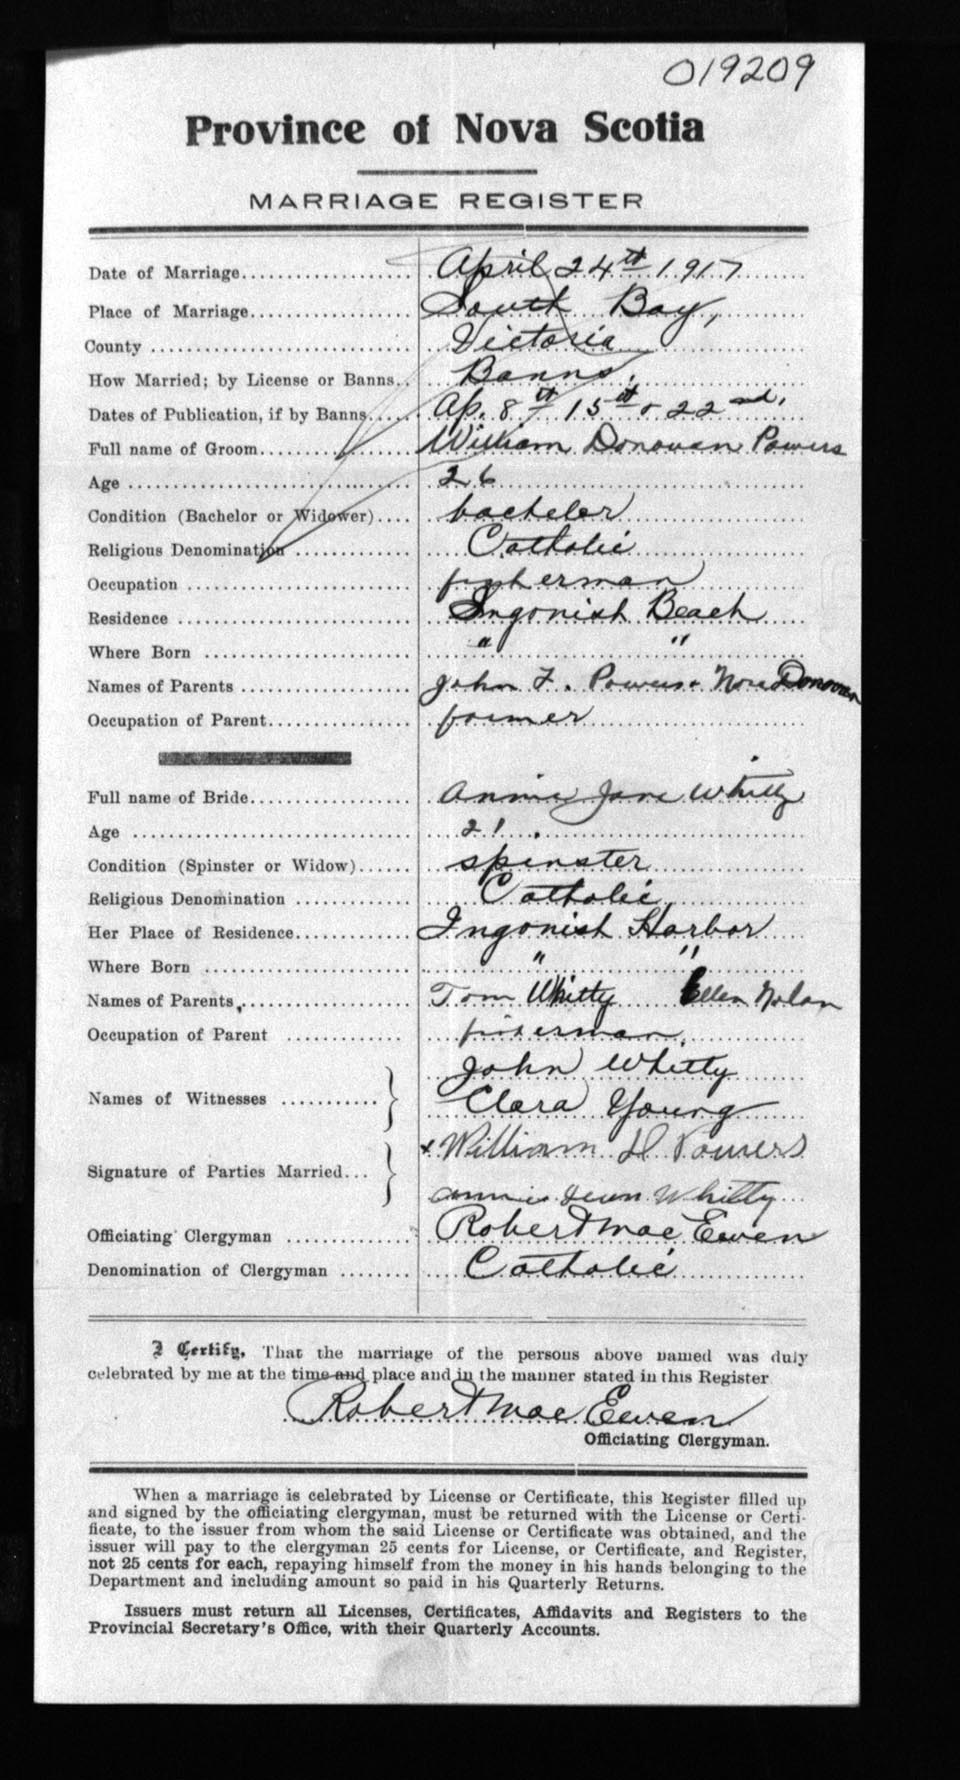 019209
Province of Nova Scotia
MARRIAGE REGISTER
Date of Marriage April 24th 1917
Place of Marriage South Bay,
County Victoria
How Married; by License or Banns Banns.
Dates of Publication, if by Banns Ap. 8th 15th & 22nd,
Full name of Groom William Donovan Powers
Age 26
Condition (Bachelor or Widower) bacheler
Religious Denomination Catholic
Occupation fisherman
Residence Ingonish Beach
Where Born " "
Names of Parents John F. Powers & Nora Donovan
Occupation of Parent farmer
Full name of Bride Annie Jane Whitty
Age 21.
Condition (Spinster or Widow) spinster
Religious Denomination Catholic
Her Place of Residence Ingonish Harbor
Where Born " "
Names of Parents Tom Whitty Ellen Nolan
Occupation of Parent fisherman.
John Whitty
Names of Witnesses }
Clara Young
x William D Powers
Signature of Parties Married }
annie Jean Whitty
Officiating Clergyman Robert MacEwen
Denomination of Clergyman Catholic
I Certify, That the marriage of the persons above named was duly
celebrated by me at the time and place and in the manner stated in this Register
Robert MacEwen
Officiating Clergyman.
When a marriage is celebrated by License or Certificate, this Register filled up
and signed by the officiating clergyman, must be returned with the License or Certi-
ficate, to the issuer from whom the said License or Certificate was obtained, and the
issuer will pay to the clergyman 25 cents for License, or Certificate, and Register,
not 25 cents for each, repaying himself from the money in his hands belonging to the
Department and including amount so paid in his Quarterly Returns.
Issuers must return all Licenses, Certificates, Affidavits and Registers to the
Provincial Secretary's Office, with their Quarterly Accounts.